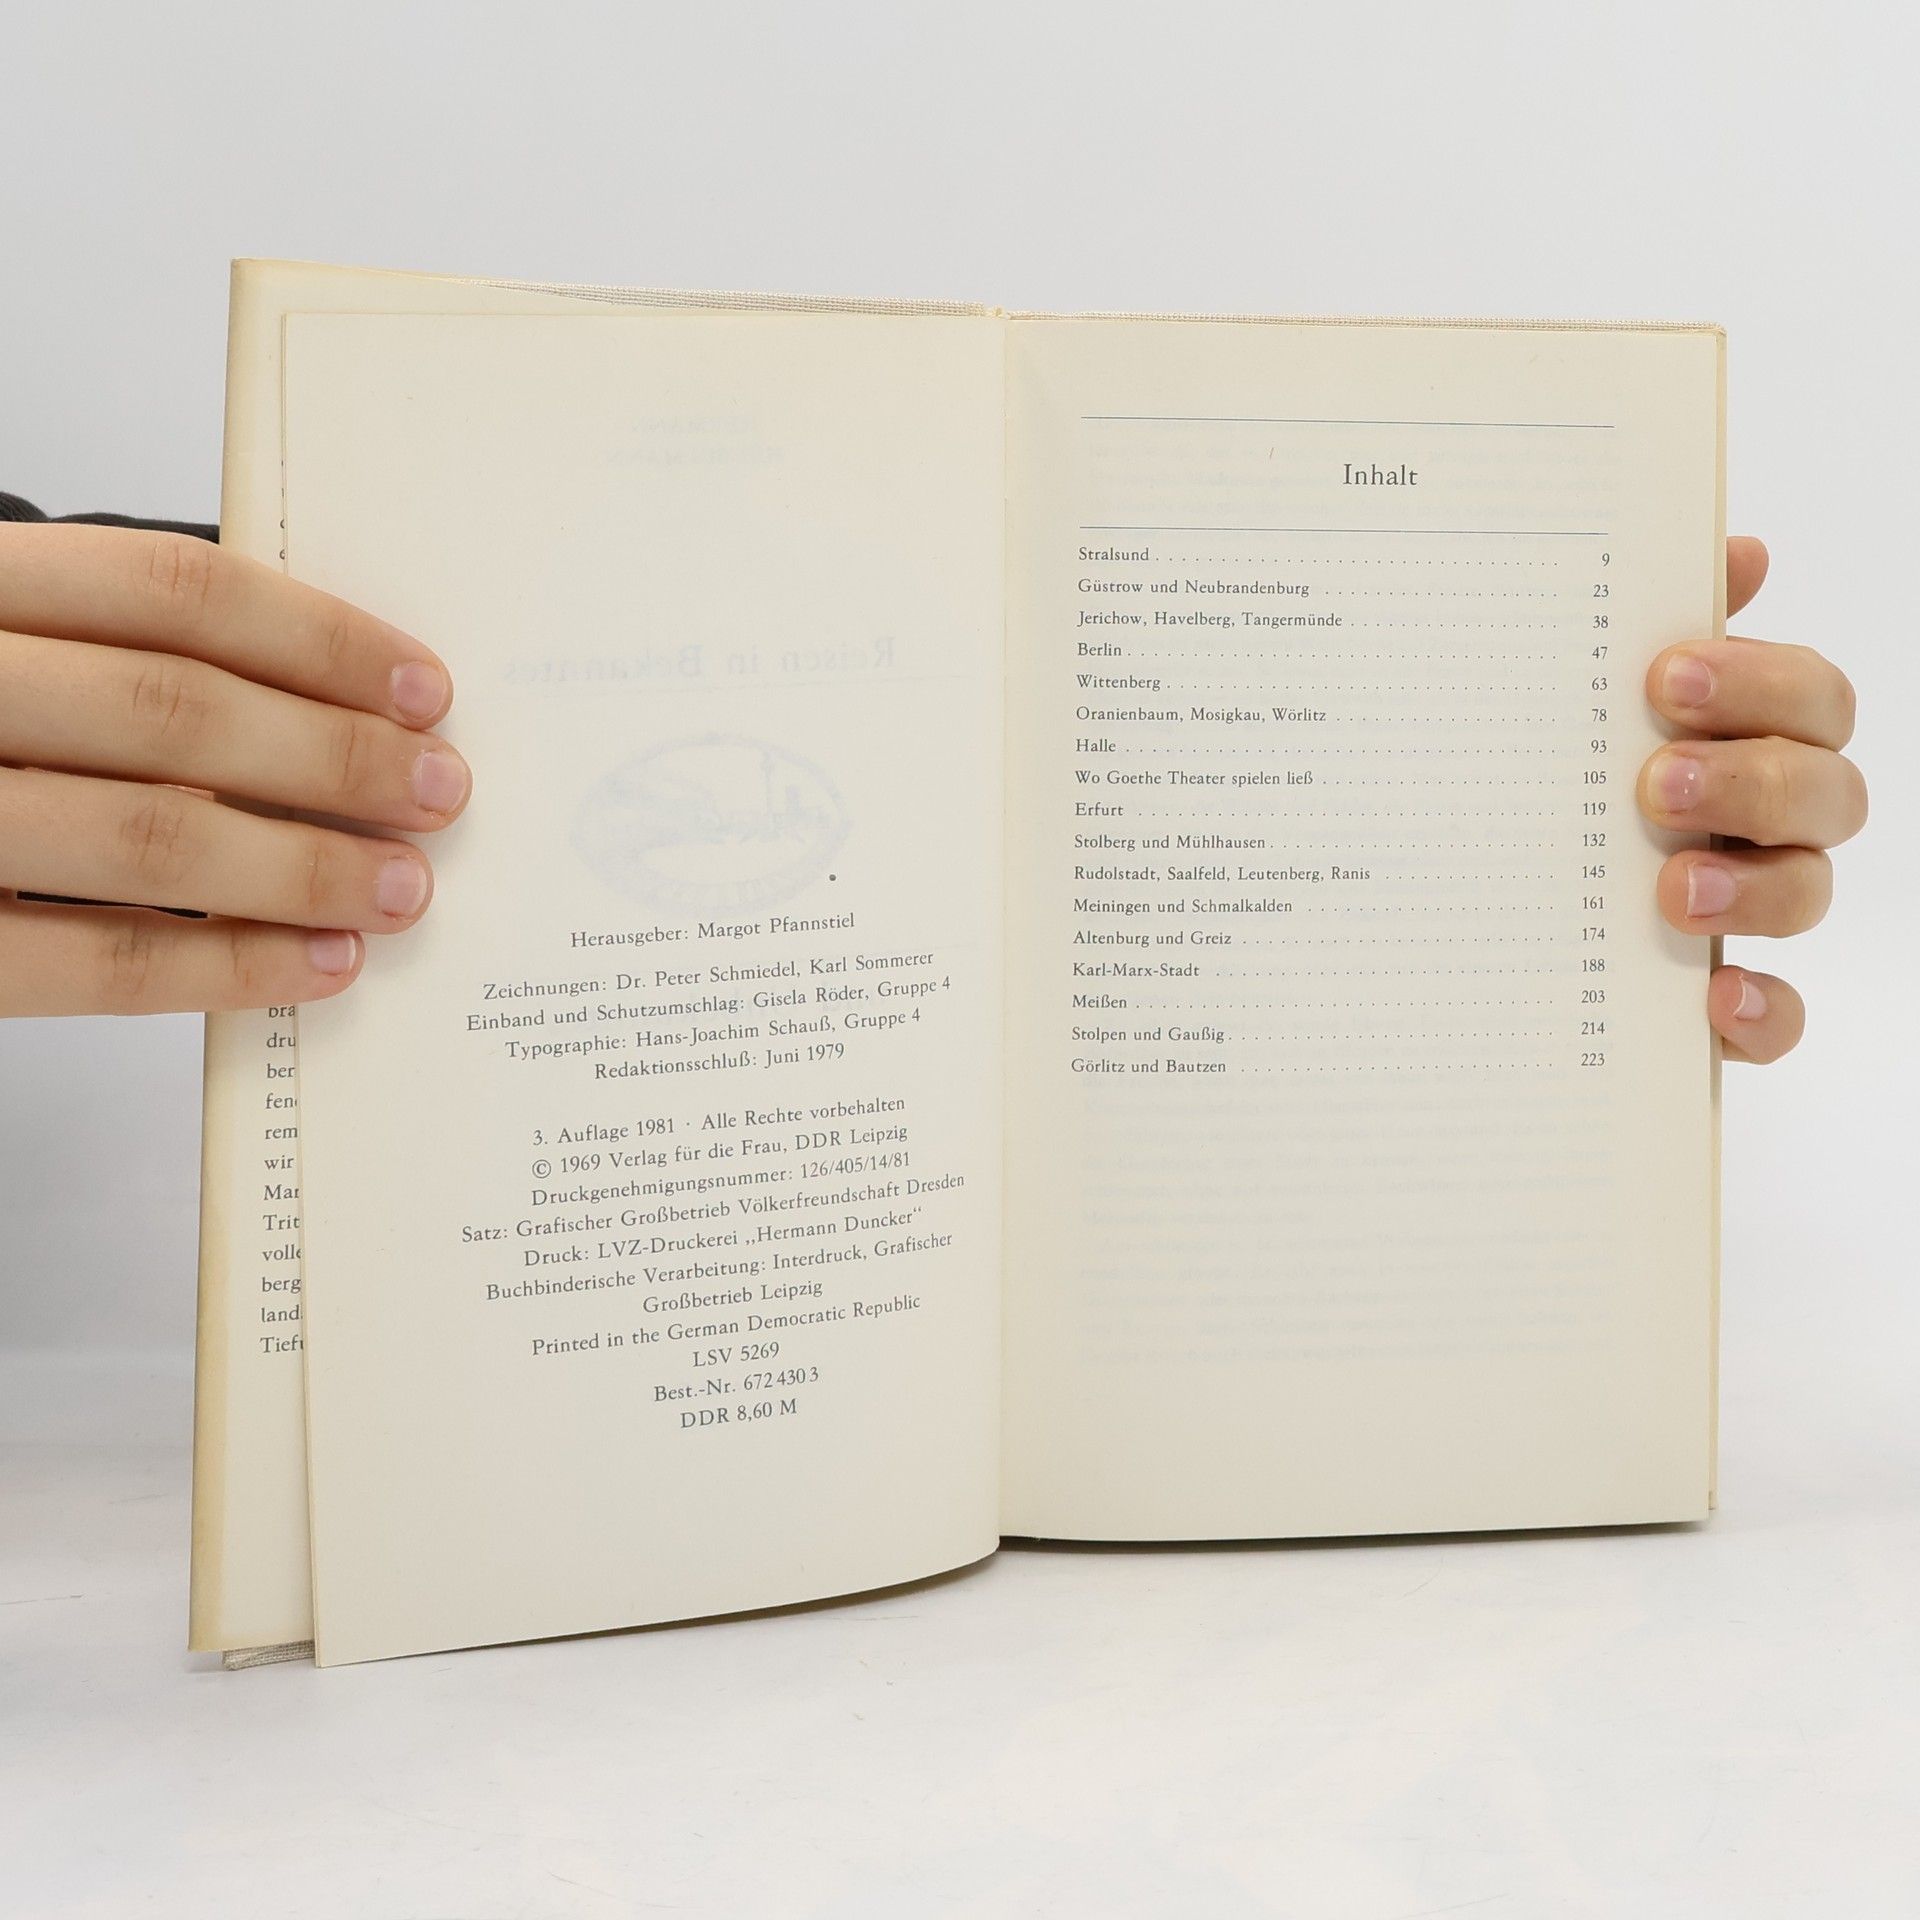 bra
dru
ber
fen
rem
wir
Mar
Trit
voll
berg
land
Tief
Reisen in Bekanntes
Herausgeber: Margot Pfannstiel
Zeichnungen: Dr. Peter Schmiedel, Karl Sommerer
Einband und Schutzumschlag: Gisela Röder, Gruppe 4
Typographie: Hans-Joachim Schauß, Gruppe 4
Redaktionsschluß: Juni 1979
3. Auflage 1981 · Alle Rechte vorbehalten
© 1969 Verlag für die Frau, DDR Leipzig
Druckgenehmigungsnummer: 126/405/14/81
Satz: Grafischer Großbetrieb Völkerfreundschaft Dresden
Druck: LVZ-Druckerei „Hermann Duncker“
Buchbinderische Verarbeitung: Interdruck, Grafischer
Großbetrieb Leipzig
Printed in the German Democratic Republic
LSV 5269
Best.-Nr. 672 430 3
DDR 8,60 M
Inhalt
Stralsund . . . . . . . . . . . . . . . . . . . . . . . . . . . . . . . 9
Güstrow und Neubrandenburg . . . . . . . . . . . . . . . . . . 23
Jerichow, Havelberg, Tangermünde . . . . . . . . . . . . . . . . 38
Berlin . . . . . . . . . . . . . . . . . . . . . . . . . . . . . . . . . 47
Wittenberg . . . . . . . . . . . . . . . . . . . . . . . . . . . . . . 63
Oranienbaum, Mosigkau, Wörlitz . . . . . . . . . . . . . . . . . 78
Halle . . . . . . . . . . . . . . . . . . . . . . . . . . . . . . . . . 93
Wo Goethe Theater spielen ließ . . . . . . . . . . . . . . . . . . 105
Erfurt . . . . . . . . . . . . . . . . . . . . . . . . . . . . . . . . 119
Stolberg und Mühlhausen . . . . . . . . . . . . . . . . . . . . . . 132
Rudolstadt, Saalfeld, Leutenberg, Ranis . . . . . . . . . . . . . 145
Meiningen und Schmalkalden . . . . . . . . . . . . . . . . . . . 161
Altenburg und Greiz . . . . . . . . . . . . . . . . . . . . . . . . 174
Karl-Marx-Stadt . . . . . . . . . . . . . . . . . . . . . . . . . . 188
Meißen . . . . . . . . . . . . . . . . . . . . . . . . . . . . . . . . 203
Stolpen und Gaußig . . . . . . . . . . . . . . . . . . . . . . . . . 214
Görlitz und Bautzen . . . . . . . . . . . . . . . . . . . . . . . . 223